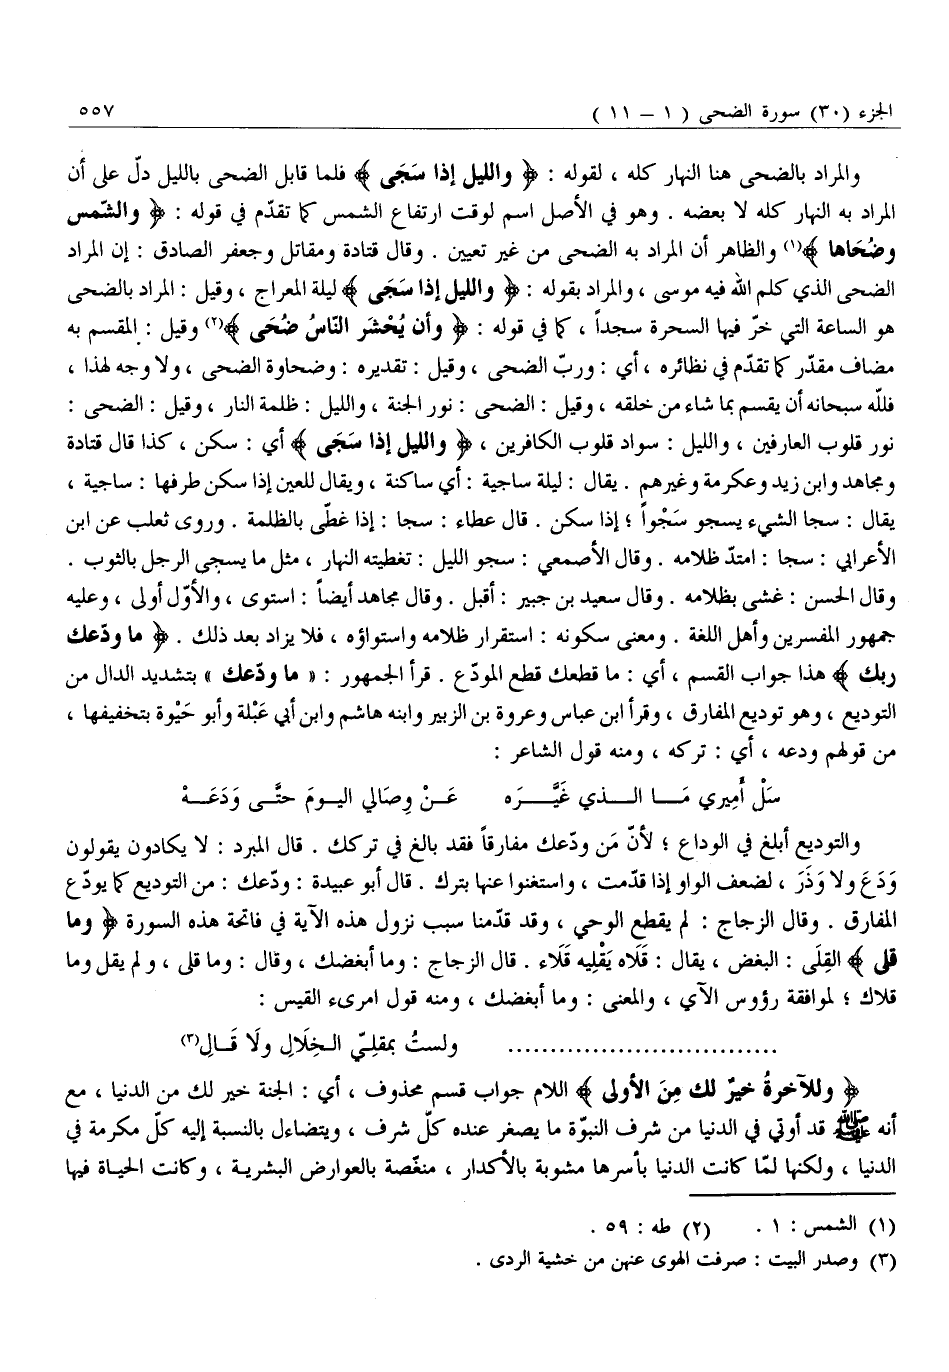 الجزء (٣٠) سورة الضحى ( ١ – ١١ ) ٥٥٧
والمراد بالضحى هنا النهار كله ، لقوله : ﴿ والليل إذا سَجَى ﴾ فلما قابل الضحى بالليل دلّ على أن
المراد به النهار كله لا بعضه . وهو في الأصل اسم لوقت ارتفاع الشمس كما تقدّم في قوله : ﴿ والشّمس
وضُحَاها ﴾(١) والظاهر أن المراد به الضحى من غير تعيين . وقال قتادة ومقاتل وجعفر الصادق : إن المراد
الضحى الذي كلم الله فيه موسى ، والمراد بقوله : ﴿ والليل إذا سَجَى ﴾ ليلة المعراج ، وقيل : المراد بالضحى
هو الساعة التي خرّ فيها السحرة سجداً ، كما في قوله : ﴿ وأن يُحْشر النّاسُ ضُحَى ﴾(٢) وقيل : المقسم به
مضاف مقدّر كما تقدّم في نظائره ، أي : وربّ الضحى ، وقيل : تقديره : وضحاوة الضحى ، ولا وجه لهذا ،
فلله سبحانه أن يقسم بما شاء من خلقه ، وقيل : الضحى : نور الجنة ، والليل : ظلمة النار ، وقيل : الضحى :
نور قلوب العارفين ، والليل : سواد قلوب الكافرين ، ﴿ والليل إذا سَجَى ﴾ أي : سكن ، كذا قال قتادة
ومجاهد وابن زيد وعكرمة وغيرهم . يقال : ليلة ساجية : أي ساكنة ، ويقال للعين إذا سكن طرفها : ساجية ،
يقال : سجا الشيء يسجو سَجْواً ؛ إذا سكن . قال عطاء : سجا : إذا غطّى بالظلمة . وروى ثعلب عن ابن
الأعرابي : سجا : امتدّ ظلامه . وقال الأصمعي : سجو الليل : تغطيته النهار ، مثل ما يسجى الرجل بالثوب .
وقال الحسن : غشى بظلامه . وقال سعيد بن جبير : أقبل . وقال مجاهد أيضاً : استوى ، والأوّل أولى ، وعليه
جمهور المفسرين وأهل اللغة . ومعنى سكونه : استقرار ظلامه واستواؤه ، فلا يزاد بعد ذلك . ﴿ ما ودّعك
ربك ﴾ هذا جواب القسم ، أي : ما قطعك قطع المودّع . قرأ الجمهور : « ما ودّعك » بتشديد الدال من
التوديع ، وهو توديع المفارق ، وقرأ ابن عباس وعروة بن الزبير وابنه هاشم وابن أبي عَبْلة وأبو حَيْوة بتخفيفها ،
من قولهم ودعه ، أي : تركه ، ومنه قول الشاعر :
سَلْ أَمِيري مَــا الــذي غَيَّــرَه عَــنْ وِصَالي اليـومَ حتَّــى وَدَعَــهْ
والتوديع أبلغ في الوداع ؛ لأنّ مَن ودّعك مفارقاً فقد بالغ في تركك . قال المبرد : لا يكادون يقولون
وَدَعَ ولا وَذَرَ ، لضعف الواو إذا قدّمت ، واستغنوا عنها بترك . قال أبو عبيدة : ودّعك : من التوديع كما يودّع
المفارق . وقال الزجاج : لم يقطع الوحي ، وقد قدّمنا سبب نزول هذه الآية في فاتحة هذه السورة ﴿ وما
قلى ﴾ القِلَى : البغض ، يقال : قَلَاه يَقْلِيه قَلَاء . قال الزجاج : وما أبغضك ، وقال : وما قلى ، ولم يقل وما
قلاك ؛ لموافقة رؤوس الآي ، والمعنى : وما أبغضك ، ومنه قول امرىء القيس :
................................ ولستُ بمقلِيّ الـخِلَالِ ولَا قَــالِ(٣)
﴿ وللآخرةُ خيرٌ لك مِنَ الأولى ﴾ اللام جواب قسم محذوف ، أي : الجنة خير لك من الدنيا ، مع
أنه ﷺ قد أوتي في الدنيا من شرف النبوّة ما يصغر عنده كلّ شرف ، ويتضاءل بالنسبة إليه كلّ مكرمة في
الدنيا ، ولكنها لمّا كانت الدنيا بأسرها مشوبة بالأكدار ، منغّصة بالعوارض البشرية ، وكانت الحياة فيها
(١) الشمس : ١ . (٢) طه : ٥٩ .
(٣) وصدر البيت : صرفت الهوى عنهن من خشية الردى .